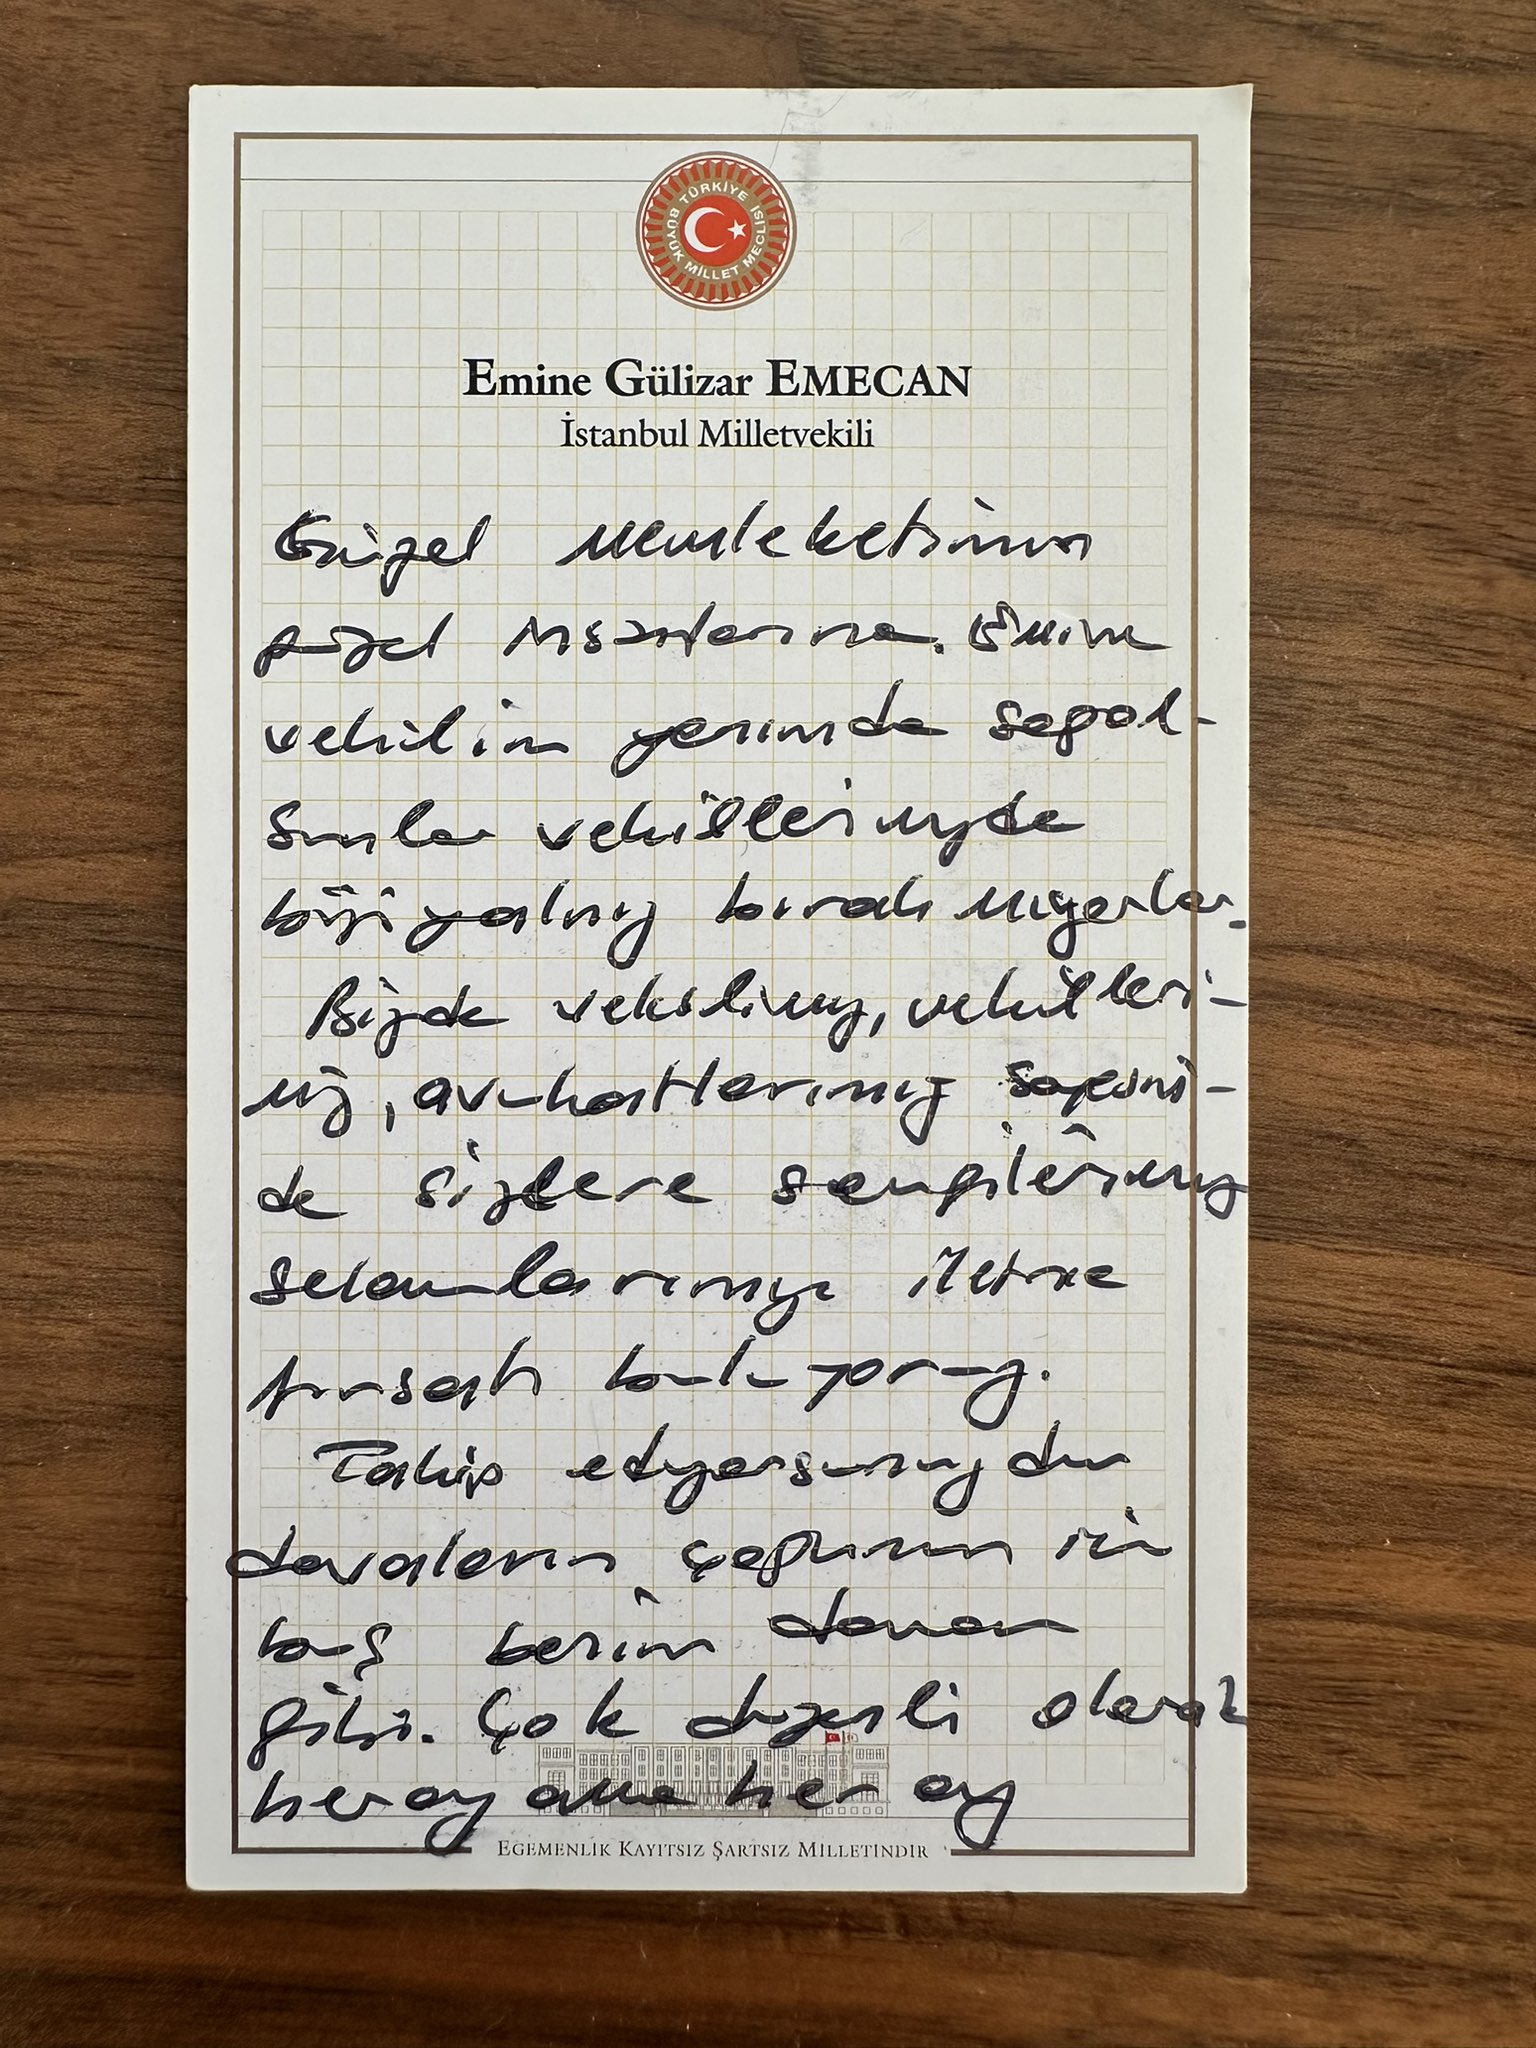 TÜRKİYE BÜYÜK MİLLET MECLİSİ
Emine Gülizar EMECAN
İstanbul Milletvekili
Güzel Memleketimin
güzel insanlarına. Emine
vekilin yanında sağol-
sunlar vekillerimizde
bizi yalnız bırakmıyorlar.
Bizde vekilimiz, vekilleri-
miz, avukatlarımız sayesin-
de sizlere sevgilerimizi
selamlarımızı iletme
fırsatı buluyoruz.
Takip ediyorsunuzdur
davaların çoğunun içi
boş benim davam
gibi. Çok değerli olarak
her ay ama her ay
EGEMENLİK KAYITSIZ ŞARTSIZ MİLLETİNDİR